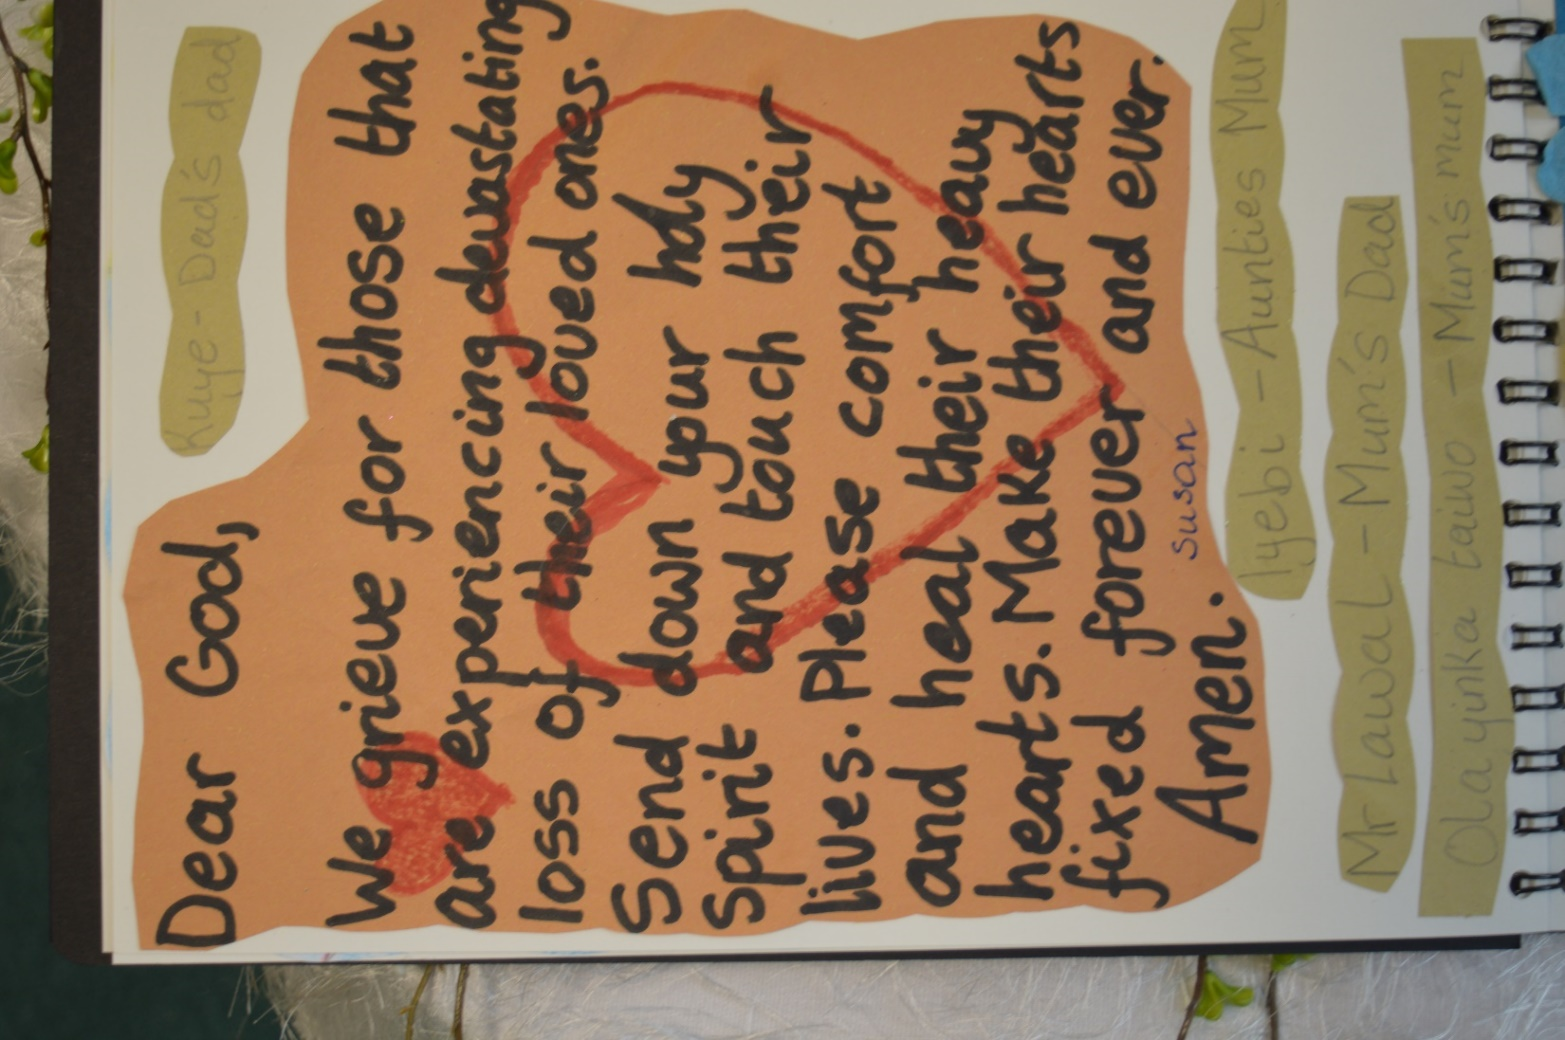 Kuye - Dad's dad
Dear God,
We grieve for those that
are experiencing devastating
loss of their loved ones.
Send down your holy
Spirit and touch their
lives. Please comfort
and heal their heavy
hearts. Make their hearts
fixed forever and ever.
Amen.
Susan
Iyebi - Aunties Mum
Mr Lawal - Mum's Dad
Olayinka taiwo - Mum's mum